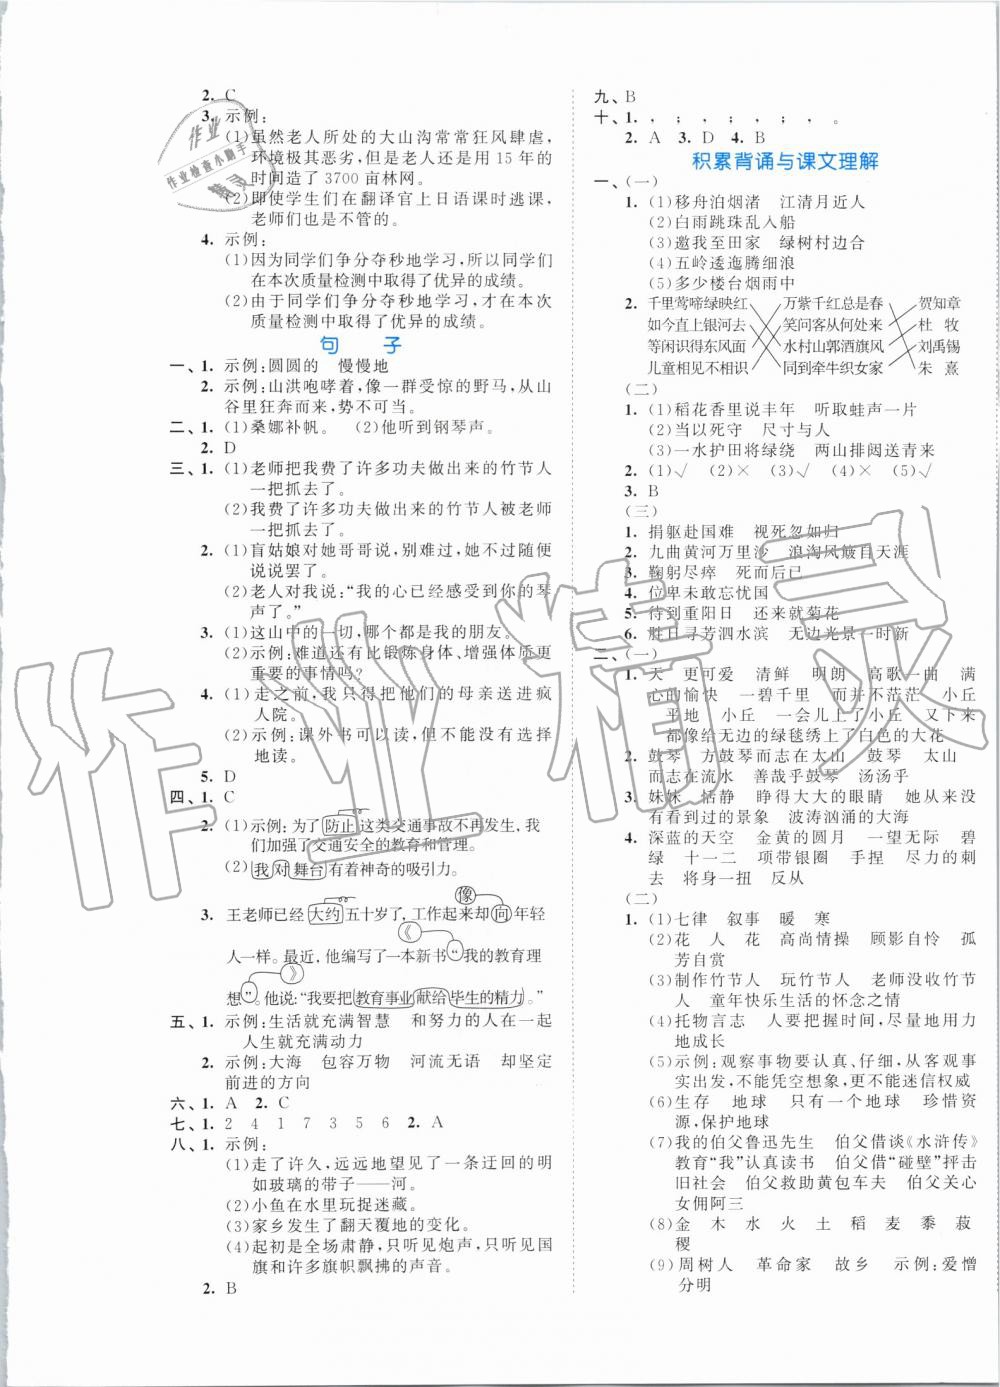 2. C
3. 示例:
(1)虽然老人所处的大山沟常常狂风肆虐,
环境极其恶劣,但是老人还是用 15 年的
时间造了 3700 亩林网。
(2)即使学生们在翻译官上日语课时逃课,
老师们也是不管的。
4. 示例:
(1)因为同学们争分夺秒地学习,所以同学们
在本次质量检测中取得了优异的成绩。
(2)由于同学们争分夺秒地学习,才在本次
质量检测中取得了优异的成绩。
句 子
一、1. 示例:圆圆的 慢慢地
2. 示例:山洪咆哮着,像一群受惊的野马,从山
谷里狂奔而来,势不可当。
二、1. (1)桑娜补帆。 (2)他听到钢琴声。
2. D
三、1. (1)老师把我费了许多功夫做出来的竹节人
一把抓去了。
(2)我费了许多功夫做出来的竹节人被老师
一把抓去了。
2. (1)盲姑娘对她哥哥说,别难过,她不过随便
说说罢了。
(2)老人对我说:“我的心已经感受到你的琴
声了。”
3. (1)这山中的一切,哪个都是我的朋友。
(2)示例:难道还有比锻炼身体、增强体质更
重要的事情吗?
4. (1)走之前,我只得把他们的母亲送进疯
人院。
(2)示例:课外书可以读,但不能没有选择
地读。
5. D
四、1. C
2. (1)示例:为了防止这类交通事故不再发生,我
们加强了交通安全的教育和管理。
(2)我对舞台有着神奇的吸引力。
像
3. 王老师已经大约五十岁了,工作起来却向年轻
《
人一样。最近,他编写了一本新书“我的教育理
》
想”。他说:“我要把教育事业献给毕生的精力。”
五、1. 示例:生活就充满智慧 和努力的人在一起
人生就充满动力
2. 示例:大海 包容万物 河流无语 却坚定
前进的方向
六、1. A 2. C
七、1. 2 4 1 7 3 5 6 2. A
八、1. 示例:
(1)走了许久,远远地望见了一条迂回的明
如玻璃的带子——河。
(2)小鱼在水里玩捉迷藏。
(3)家乡发生了翻天覆地的变化。
(4)起初是全场肃静,只听见炮声,只听见国
旗和许多旗帜飘拂的声音。
2. B
九、B
十、1. , ; , ; , ; , 。
2. A 3. D 4. B
积累背诵与课文理解
一、(一)
1. (1)移舟泊烟渚 江清月近人
(2)白雨跳珠乱入船
(3)邀我至田家 绿树村边合
(4)五岭逶迤腾细浪
(5)多少楼台烟雨中
2. 千里莺啼绿映红 万紫千红总是春 贺知章
如今直上银河去 笑问客从何处来 杜 牧
等闲识得东风面 水村山郭酒旗风 刘禹锡
儿童相见不相识 同到牵牛织女家 朱 熹
(二)
1. (1)稻花香里说丰年 听取蛙声一片
(2)当以死守 尺寸与人
(3)一水护田将绿绕 两山排闼送青来
2. (1)√ (2)× (3)√ (4)× (5)√
3. B
(三)
1. 捐躯赴国难 视死忽如归
2. 九曲黄河万里沙 浪淘风簸自天涯
3. 鞠躬尽瘁 死而后已
4. 位卑未敢忘忧国
5. 待到重阳日 还来就菊花
6. 胜日寻芳泗水滨 无边光景一时新
二、(一)
1. 天 更可爱 清鲜 明朗 高歌一曲 满
心的愉快 一碧千里 而并不茫茫 小丘
平地 小丘 一会儿上了小丘 又下来
都像给无边的绿毯绣上了白色的大花
2. 鼓琴 方鼓琴而志在太山 鼓琴 太山
而志在流水 善哉乎鼓琴 汤汤乎
3. 妹妹 恬静 睁得大大的眼睛 她从来没
有看到过的景象 波涛汹涌的大海
4. 深蓝的天空 金黄的圆月 一望无际 碧
绿 十一二 项带银圈 手捏 尽力的刺
去 将身一扭 反从
(二)
1. (1)七律 叙事 暖 寒
(2)花 人 花 高尚情操 顾影自怜 孤
芳自赏
(3)制作竹节人 玩竹节人 老师没收竹节
人 童年快乐生活的怀念之情
(4)托物言志 人要把握时间,尽量地用力
地成长
(5)示例:观察事物要认真、仔细,从客观事
实出发,不能凭空想象,更不能迷信权威
(6)生存 地球 只有一个地球 珍惜资
源,保护地球
(7)我的伯父鲁迅先生 伯父借谈《水浒传》
教育“我”认真读书 伯父借“碰壁”抨击
旧社会 伯父救助黄包车夫 伯父关心
女佣阿三
(8)金 木 水 火 土 稻 麦 黍 菽
稷
(9)周树人 革命家 故乡 示例:爱憎
分明
作业精灵
作业
作业检查小助手
精灵